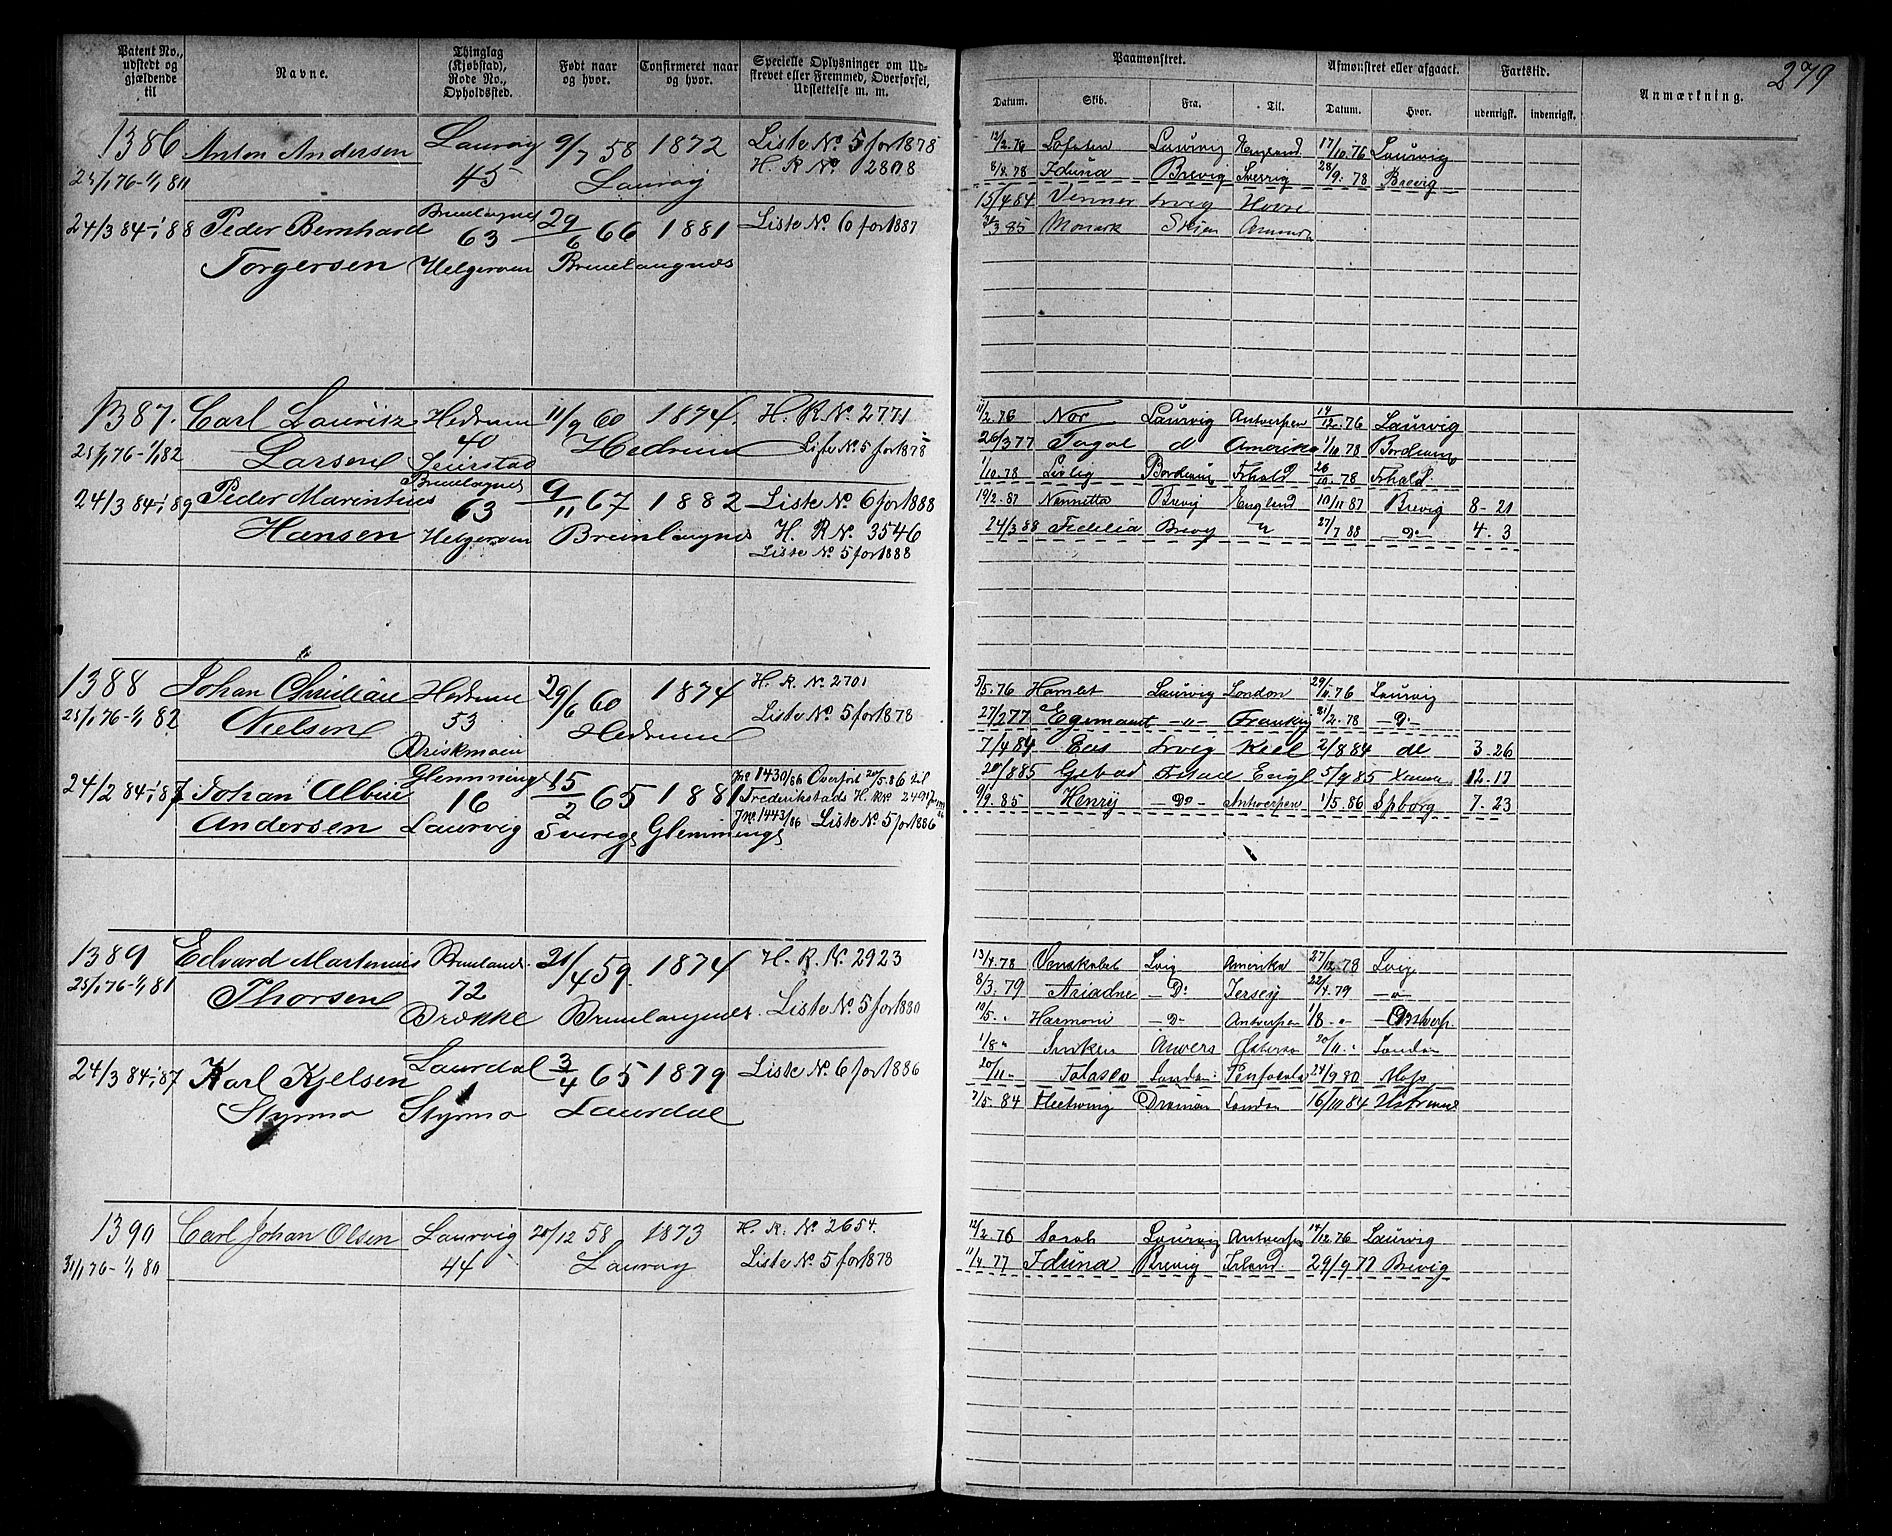 Patent No., udstedt og gjældende til
Navne.
Thinglag (Kjøbstad), Rode No., Opholdssted.
Født naar og hvor.
Confirmeret naar og hvor.
Specielle Oplysninger om Udskrevet eller Fremmed, Overførsel, Udslettelse m. m.
1386 Anton Andersen Laurvig 9/7 58 1872 Liste No. 5 for 1878
25/1 76-1/1 80 45 Laurvig H. R. No. 2808
24/3 84-1/1 88 Peder Bernhard Brunlagnes 63 29/6 66 1881 Liste No. 6 for 1887
Torgersen Helgeroen Brunlaugnes
1387. Carl Lauritz Hedrum 11/9 60 1874. H. R. No. 2771
25/1 76-1/1 82 Larsen 40 Seierstad Hedrum Liste No. 5 for 1878
24/3 84-1/1 89 Peder Marentius Brunlagnes 63 9/11 67 1882 Liste No. 6 for 1888
Hansen Helgeroen Brunlaugnes H. R. No. 3546
Liste No. 5 for 1888
1388 Johan Christian Hedrum 29/6 60 1874 H. R. No. 2701
25/1 76-1/1 82 Nielsen 53 Hedrum Liste No. 5 for 1878
24/2 84-1/1 87 Johan Albin Glemminge 16 15/2 65 1881 Jnc 1430/86 Overført 20/5 86 til
Frederikstads H. RR
Andersen Laurvig Sverige Glemminge Jnc 1443/86 Liste No. 5 for 1886
1389 Edvard Martinius 21/4 59. 1874 H. R. No. 2923
25/1 76-1/1 81 Thorsen 72 Brække Brunlaugnes. Liste No. 5 for 1880
24/3 84-1/1 87 Karl Kjelsen Laurdal 3/4 65 1879 Liste No. 6 for 1886
Styrmo Styrmo Laurdal
1390 Carl Johan Olsen Laurvig 20/12 58 1873 H. R. No. 2654.
31/1 76-1/1 80 44 Laurvig Liste No. 5 for 1878
279
Paamønstret.
Afmønstret eller afgaaet.
Fartstid.
Anmærkning.
Datum. Skib. Fra. Til. Datum. Hvor. udenrigst. indenrigst.
12/2 76 Lofoten Laurvig England 17/10 76 Laurvig
8/4 78 Iduna Brevig Sverrig 28/9 78 Brevig
15/4 84 Venner Lrvig Hovre
85 Monark Skien
11/2 76 Nor Laurvig Antwerpen 14/12 76 Laurvig
26/3 77 d Amerika 1/10 78 Bordeaux
1/10 78 Bordeaux Frhald 26/10 78 Frhald
19/2 87 Nannetta Brevig England 10/11 87 Brevig 8-21
24/3 88 Fidelia Brevig " 27/7 88 Do 4.3
5/5 76 Hamlet Laurvig London 29/11 76 Laurvig
27/2 77 Egemaet -"- Frankrig 31/2 78 -Do-
7/4 84 Eos Lrvig Kiel 2/8 84 do 3-26
20/8 85 Engl 5/9 85 12.17
9/9 85 Henry -Do- Antwerpen 1/5 86 Spborg 7-23
13/4 78 Venskabet Lvig Amerika 27/12 78 Lvig
8/3 79 Ariadne -Do- Jersey 22/4 79 -"-
10/5 " Harmoni -Do- Antwerpen 1/8 -"-
1/8 " Anvers Østersø 20/11 " London
20/11 - London 24/9 80
7/5 84 Hertving Dramen London 16/11 84
12/2 76 Sarah Laurvig Antwerpen 14/12 76 Laurvig
11/4 77 Iduna Brevig Irland 29/9 77 Brevig